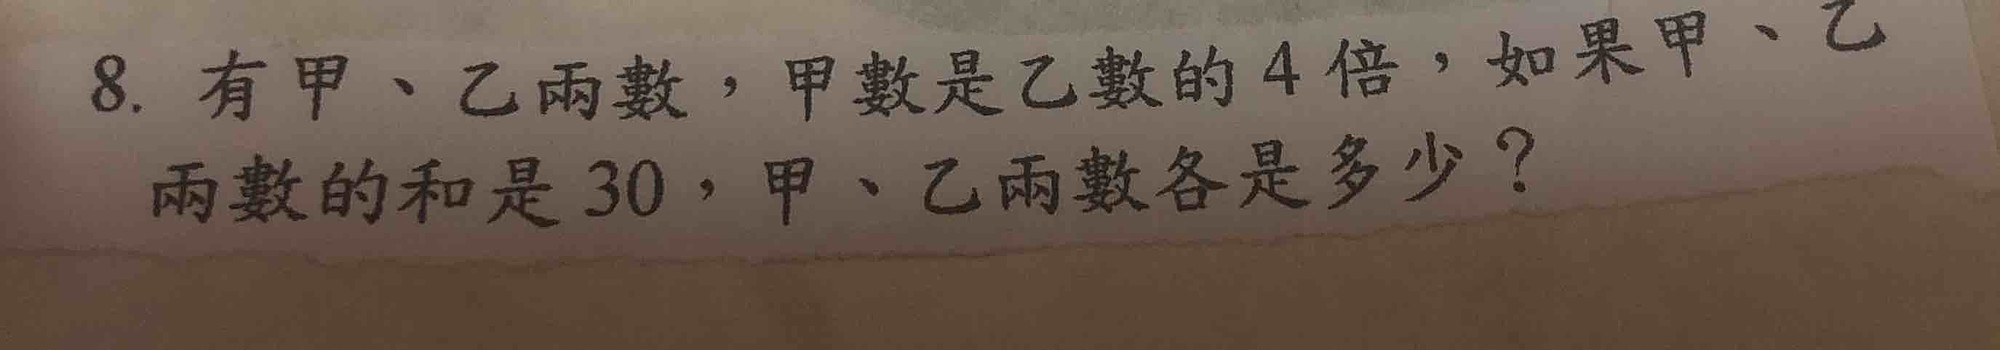 8. 有甲、乙兩數，甲數是乙數的4倍，如果甲、乙
兩數的和是30，甲、乙兩數各是多少？